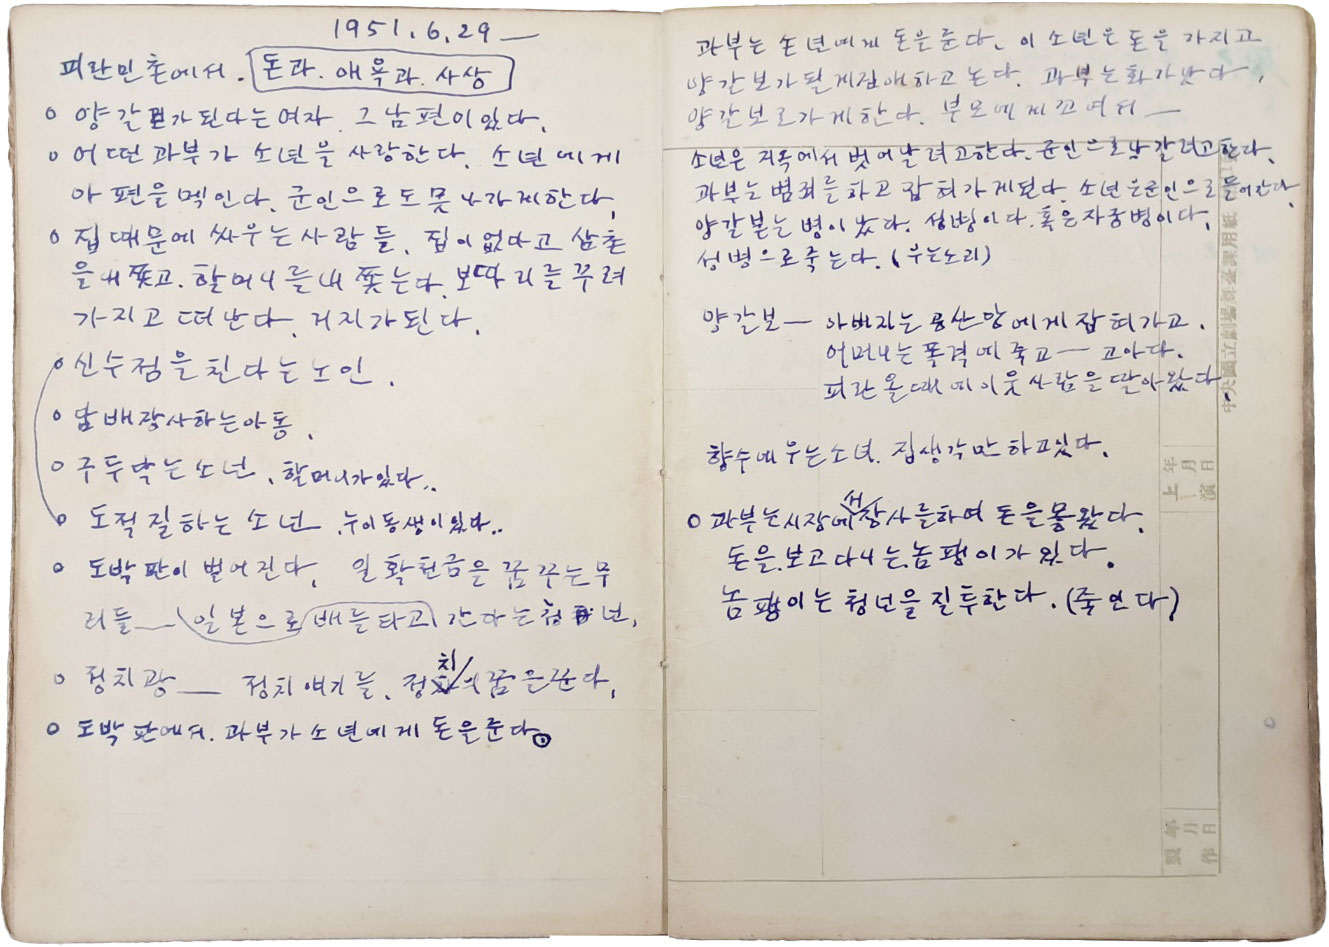 1951.6.29 —
피란민촌에서. 돈과. 애욕과. 사상
○ 양갈보가 된다는 여자. 그 남편이 있다.
○ 어떤 과부가 소년을 사랑한다. 소년에게
아편을 멕인다. 군인으로도 못 나가게 한다.
○ 집 때문에 싸우는 사람들. 집이 없다고 삼촌
을 내쫓고. 할머니를 내쫓는다. 보따리를 꾸려
가지고 떠난다. 거지가 된다.
○ 신수점을 친다는 노인.
○ 담배장사하는 아동.
○ 구두 닥는 소년. 할머니가 있다..
○ 도적질하는 소년. 누이동생이 있다..
○ 도박판이 벌어진다. 일확천금을 꿈꾸는 무
리들 — 일본으로 배를 타고 간다는 청년.
○ 정치광 — 정치 얘기들. 정치의 꿈을 꾼다.
○ 도박판에서. 과부가 소년에게 돈을 준다.
과부는 소년에게 돈을 준다. 이 소년은 돈을 가지고
양갈보가 될 게집애하고 논다. 과부는 화가 났다.
양갈보로 가게 한다. 부모에게 꼬여서 —
소년은 지옥에서 벗어날려고 한다. 군인으로 나갈려고 한다.
과부는 범죄를 하고 잡혀가게 된다. 소년은 군인으로 들어간다.
양갈본는 병이 났다. 성병이다. 혹은 자궁병이다.
성병으로 죽는다. (우는 노리)
양갈보 — 아버지는 공산당에게 잡혀가고.
어머니는 폭격에 죽고 — 고아다.
피란 올 때에 이웃사람을 딸아왔다.
향수에 우는 소년. 집 생각만 하고 있다.
○ 과부는 시장에서 장사를 하여 돈을 몽왔다.
돈을 보고 다니는 놈팽이가 있다.
놈팽이는 청년을 질투한다. (죽인다)
中央國立劇場舞臺課用紙
上演 年月日
製作 年月日